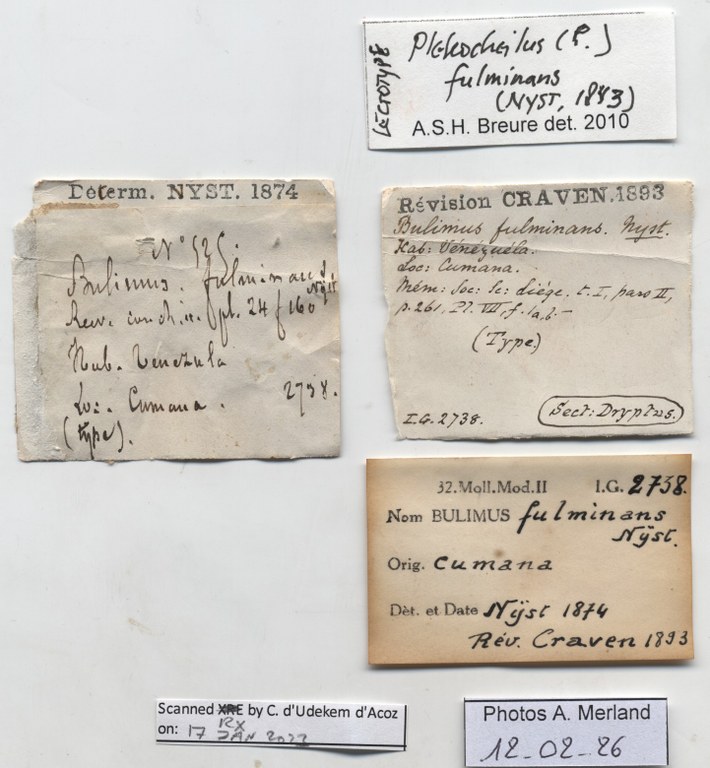 LECTOTYPE
Plekocheilus (P.)
fulminans
(NYST, 1843)
A.S.H. Breure det. 2010
Déterm. NYST. 1874
N° 525.
Bulimus. fulminans
Nyst
pl. 24 f 160
Hab. Venezula
Loc. Cumana. 2738.
(type).
Révision CRAVEN.1893
Bulimus fulminans. Nyst.
Hab: Vénézuéla.
Loc: Cumana.
Mém: Soc: Sc: Liége. t. I, pars II,
p. 261, Pl. VII, f. 1a, b.-
(Type.)
I.G. 2738. Sect: Dryptus.
32.Moll.Mod.II I.G. 2738.
Nom BULIMUS fulminans
Nÿst.
Orig. Cumana
Dèt. et Date Nÿst 1874
Rév. Craven 1893
Scanned XRE by C. d'Udekem d'Acoz
RX
on: 17 JAN 2022
Photos A. Merland
12-02-26